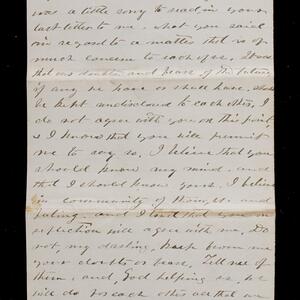 was a little sorry to read in your
last letter to me, what you said
in regard to a matter that is of
much concern to each of us. It was
that our doubts and fears of the future
if any we have or shall have, should
be kept undisclosed to each other, I
do not agree with you on this point,
& I know that you will permit
me to say so, I believe that you
should know my mind, and
that I should know yours. I believe
in community of thought and
feeling, and I trust that you on
reflection will agree with me, Do
not, my darling, keep from me
your doubts or fears, Tell me of
them, and, God helping us, we
will do for each other all that we